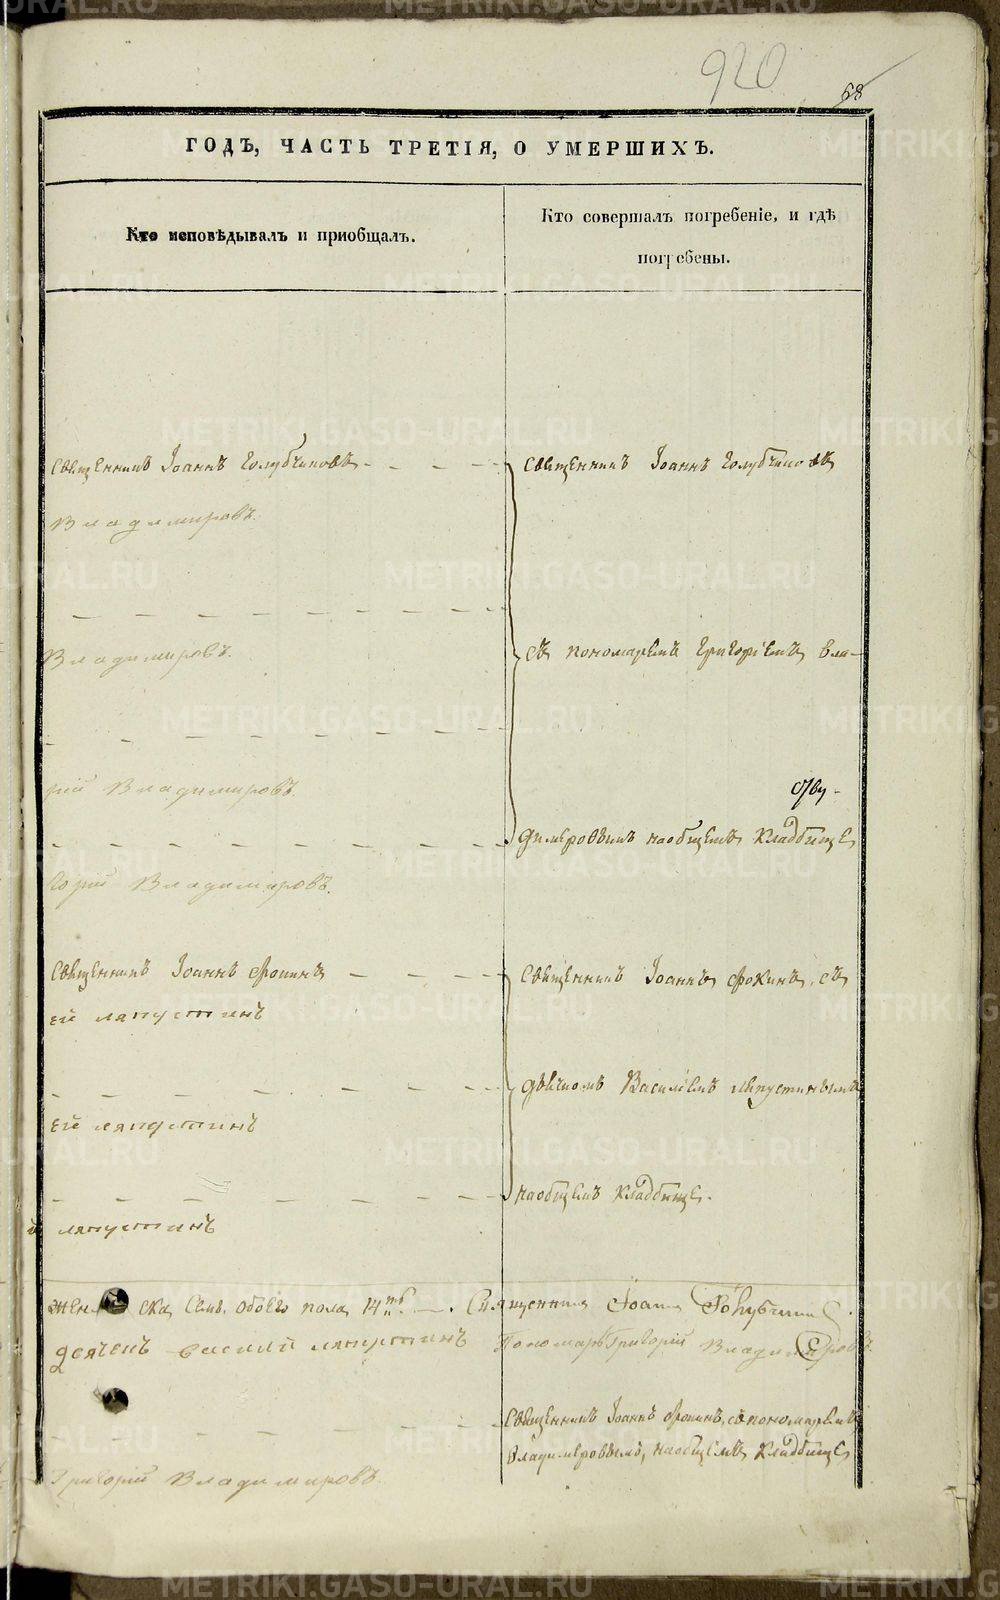 920
68
ГОДЪ, ЧАСТЬ ТРЕТІЯ, О УМЕРШИХЪ.
Кто исповѣдывалъ и пріобщалъ.
Кто совершалъ погребеніе, и гдѣ
погребены.
Священникъ Іоаннъ Голубчиковъ
Священникъ Іоаннъ Голубчиковъ
Владимировъ.
Владимировъ.
съ пономаремъ Григоріемъ Вла-
рій Владимировъ.
димеровымъ на общемъ кладбище
горій Владимировъ.
Священникъ Іоаннъ Фокинъ
Священникъ Іоаннъ Фокинъ, съ
ей ляпустинъ
дьячкомъ Василіемъ Ляпустинымъ
ей ляпустинъ
на общемъ кладбище.
й ляпустинъ
жен ска семь. обоего пола 14ть. Священникъ Іоаннъ Голубчик
дьячекъ василий ляпустинъ
Пономарь Григорій Владимировъ.
Священникъ Іоаннъ Фокинъ, съ пономаремъ
Владимеровымъ, на общемъ кладбище
Григорий Владимировъ.
METRIKI.GASO-URAL.RU